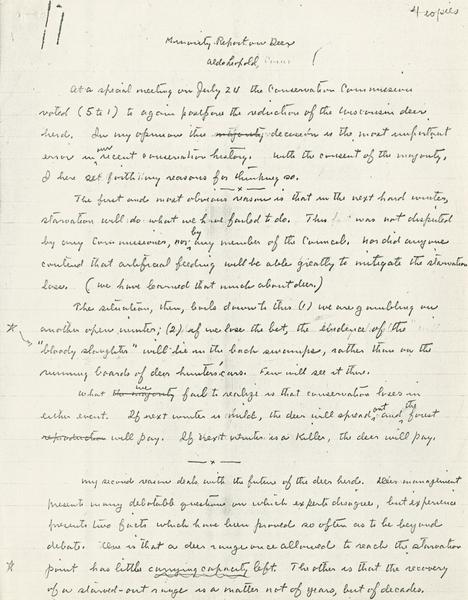 4 copies
Minority Report on Deer
Aldo Leopold,
At a special meeting on July 24 the Conservation Commission
voted (5 to 1) to again postpone the reduction of the Wisconsin deer
herd. In my opinion this majority decision is the most important
error in our recent conservation history. With the consent of the majority,
I here set forth my reasons for thinking so.
The first and most obvious reason is that in the next hard winter,
starvation will do what we have failed to do. This was not disputed
by any Commissioner, nor by any member of the Council. Nor did anyone
contend that artificial feeding will be able greatly to mitigate the starvation
loss. (We have learned that much about deer.)
The situation, then, boils down to this (1) we are gambling on
another open winter; (2) if we lose the bet, the evidence of the
"bloody slaughter" will lie in the back swamps, rather than on the
running boards of deer hunters' cars. Few will see it there.
What the majority we fail to realize is that conservation loses in
either event. If next winter is mild, the deer will spread out and the forest
reproduction will pay. If next winter is a killer, the deer will pay.
My second reason deals with the future of the deer herd. Deer management
presents many debatable questions on which experts disagree, but experience
presents two facts which have been proved so often as to be beyond
debate. One is that a deer range once allowed to reach the starvation
point has little carrying capacity left. The other is that the recovery
of a starved-out range is a matter not of years, but of decades.